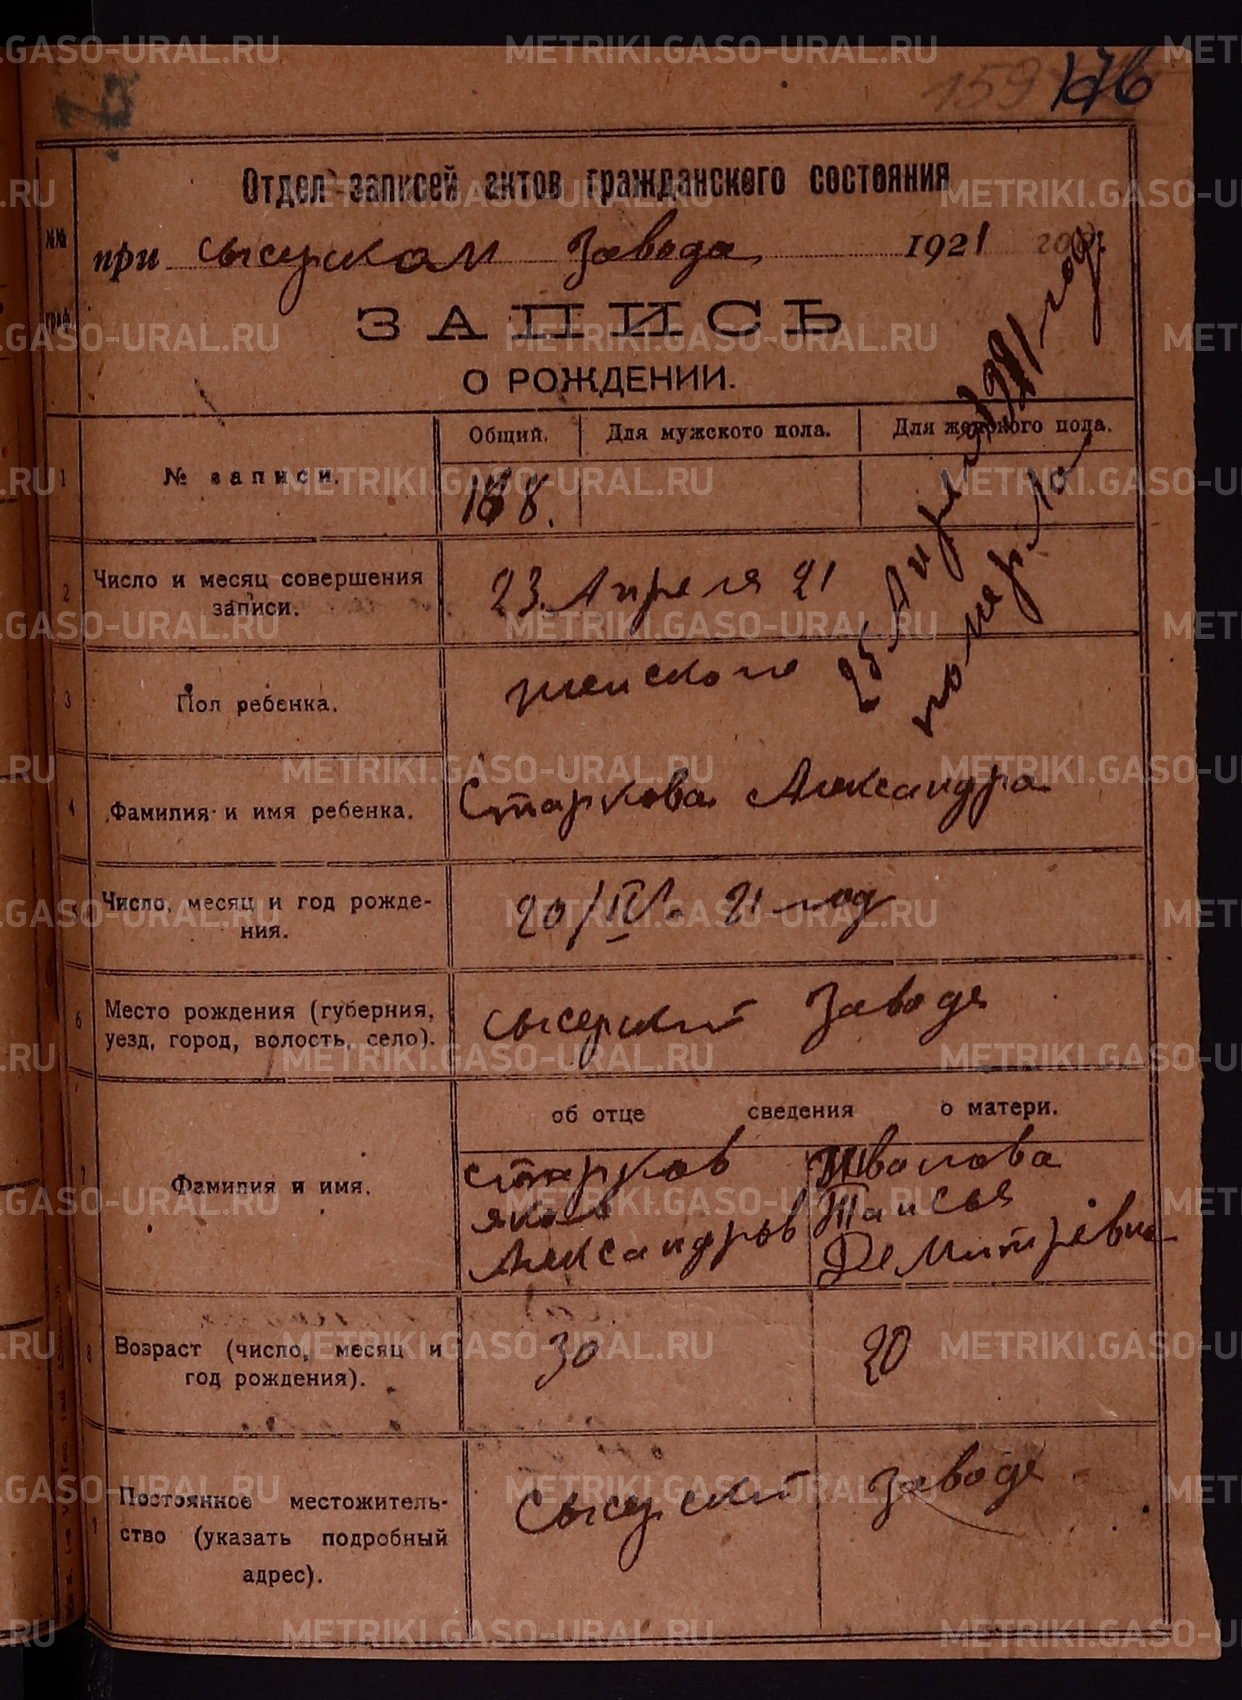 159 176
Отдел записей актов гражданского состояния
№№ граф.
при сысерском Заводе 1921 год.
ЗАПИСЬ
О РОЖДЕНИИ.
25 Апреля 1921 год
померла
Общий. Для мужского пола. Для женского пола.
1 № записи. 168.
2 Число и месяц совершения
записи. 23. Апреля 21
3 Пол ребенка. женского
4 Фамилия и имя ребенка. Старкова Александра
5 Число, месяц и год рожде-
ния. 20/IV. 21 год
6 Место рождения (губерния,
уезд, город, волость, село). сысерский Заводе
об отце сведения о матери.
7 Фамилия и имя. Старков
Яков Таисья
Александров Демитревна
8 Возраст (число, месяц и
год рождения). 30 20
9 Постоянное местожитель-
ство (указать подробный
адрес). Сысерский Заводе
METRIKI.GASO-URAL.RU